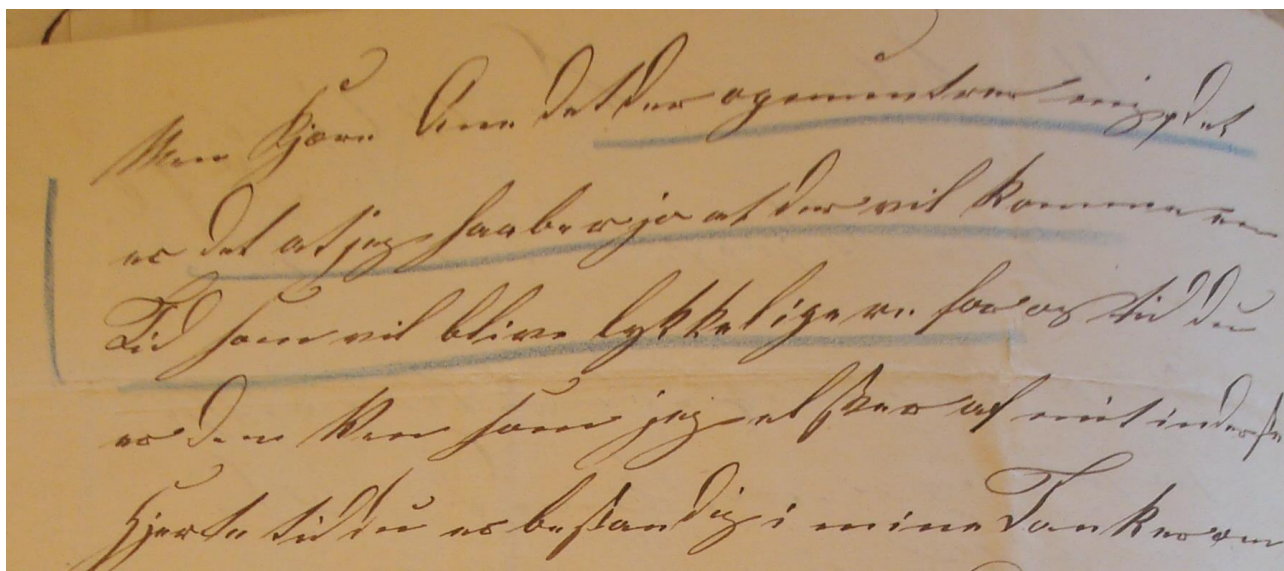 Men Kjære Ane det der opmuntrer mig, det
er det at jeg haaber jo at der vil komme en
Tid som vil blive lykkeligere for os tid du
er den Ven som jeg elsker af mit inderste
Hjerte tid du er bestandig i mine Tanker om